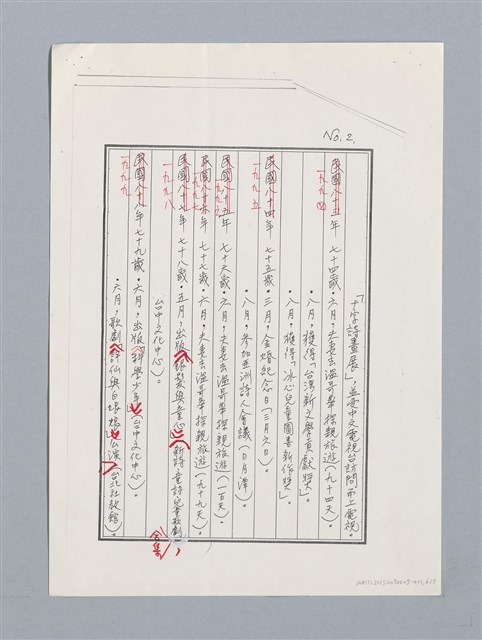 No. 2.
「十字詩畫展」,並受中文電視台訪問而上電視。
民國八十三年 七十四歲。六月,夫妻去溫哥華探親旅遊(九十四天)。
一九九四
八月,獲得「台灣新文學貢獻獎」。
八月,獲得「冰心兒童圖書新作獎」。
民國八十四年 七十五歲。三月,金婚紀念日(三月之日)。
一九九五
八月,參加亞洲詩人會議(日月潭)。
民國八十五年 七十六歲。六月,夫妻去溫哥華探親旅遊(一百天)。
一九九六
民國八十六年 七十七歲。六月,夫妻去溫哥華探親旅遊(九十九天)。
一九九七
民國八十七年 七十八歲。五月,出版《銀髮與童心》(新詩、童詩、兒童歌劇合集),
一九九八
台中文化中心)。
民國八十八年 七十九歲。六月,出版《神與少年》(台中文化中心)
一九九九
。六月,歌劇《詩仙與白娘娘》公演(台北社教館)。